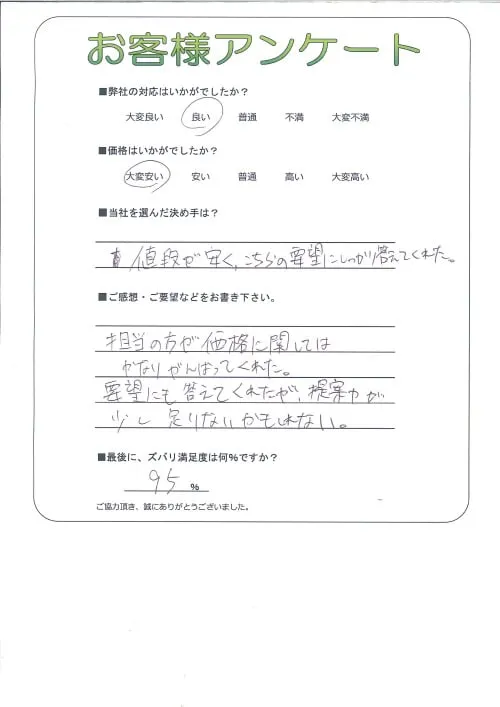 お客様アンケート
■弊社の対応はいかがでしたか？
大変良い 良い 普通 不満 大変不満
■価格はいかがでしたか？
大変安い 安い 普通 高い 大変高い
■当社を選んだ決め手は？
値段が安く、こちらの要望にしっかり答えてくれた。
■ご感想・ご要望などをお書き下さい。
担当の方が価格に関しては
かなりがんばってくれた。
要望にも答えてくれたが、提案力が
少し足りないかもしれない。
■最後に、ズバリ満足度は何％ですか？
95 %
ご協力頂き、誠にありがとうございました。